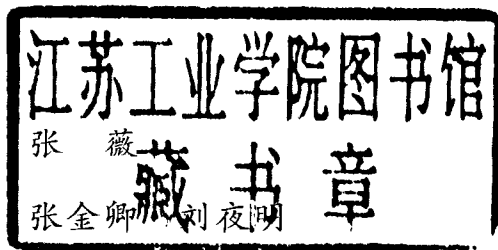 江苏工业学院图书馆
张 薇
藏书章
张金卿 刘夜明